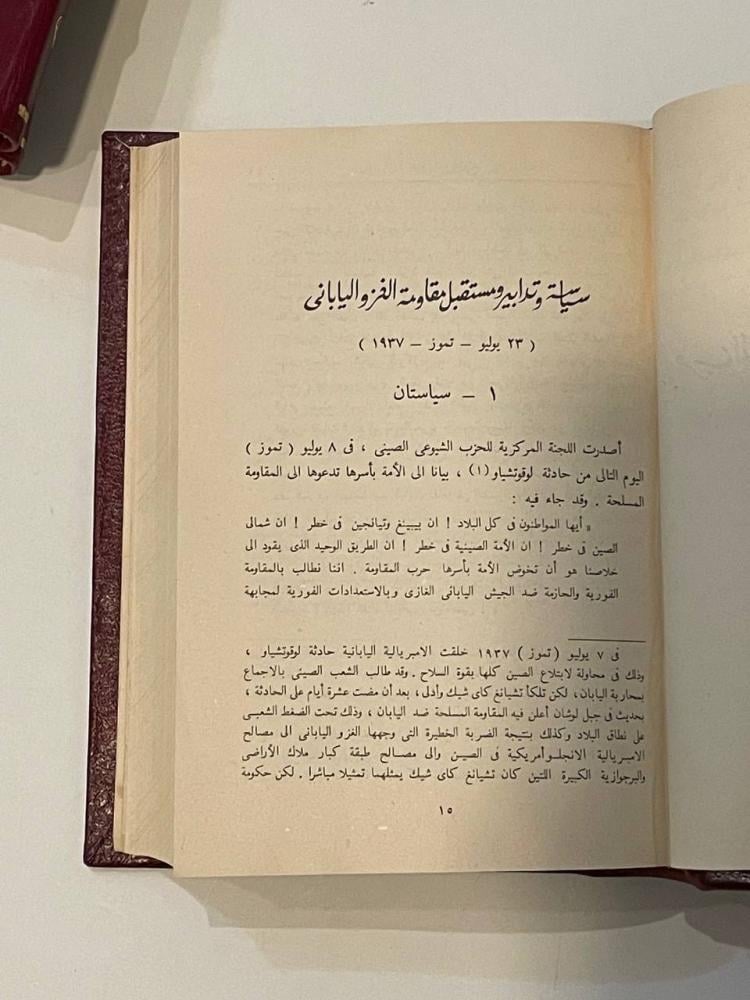 سياسة وتدابير ومستقبل مقاومة الغزو اليابانى
( ٢٣ يوليو – تموز – ١٩٣٧ )
١ – سياستان
أصدرت اللجنة المركزية للحزب الشيوعى الصينى ، فى ٨ يوليو ( تموز )
اليوم التالى من حادثة لوقوتشياو (١) ، بيانا الى الأمة بأسرها تدعوها الى المقاومة
المسلحة . وقد جاء فيه :
« أيها المواطنون فى كل البلاد ! ان بيبينغ وتيانجين فى خطر ! ان شمالى
الصين فى خطر ! ان الأمة الصينية فى خطر ! ان الطريق الوحيد الذى يقود الى
خلاصنا هو أن تخوض الأمة بأسرها حرب المقاومة . اننا نطالب بالمقاومة
الفورية والحازمة ضد الجيش اليابانى الغازى وبالاستعدادات الفورية لمجابهة
فى ٧ يوليو ( تموز ) ١٩٣٧ خلقت الامبريالية اليابانية حادثة لوقوتشياو ،
وذلك فى محاولة لابتلاع الصين كلها بقوة السلاح . وقد طالب الشعب الصينى بالاجماع
بمحاربة اليابان ، لكن تلكأ تشيانغ كاى شيك وأدلى ، بعد أن مضت عشرة أيام على الحادثة ،
بحديث فى جبل لوشان أعلن فيه المقاومة المسلحة ضد اليابان ، وذلك تحت الضغط الشعبى
على نطاق البلاد وكذلك بنتيجة الضربة الخطيرة التى وجهها الغزو اليابانى الى مصالح
الامبريالية الانجلوأمريكية فى الصين والى مصالح طبقة كبار ملاك الأراضى
والبرجوازية الكبيرة اللتين كان تشيانغ كاى شيك يمثلهما تمثيلا مباشرا . لكن حكومة
١٥